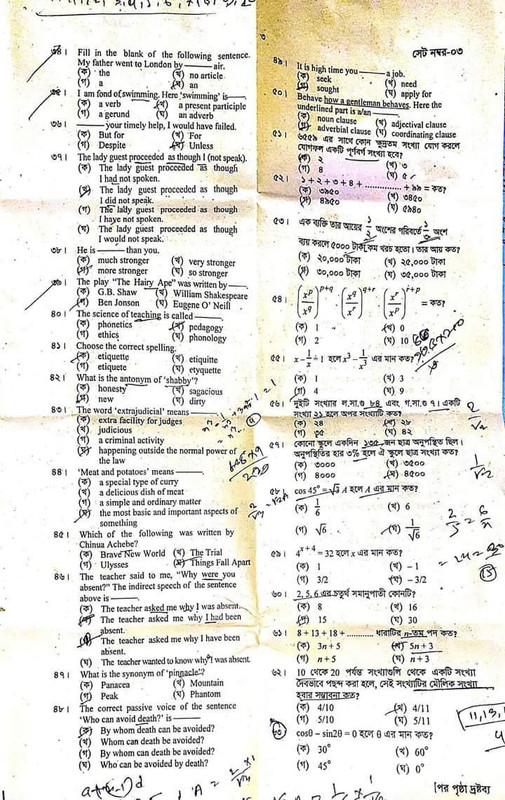 ৩
সেট নম্বর-০৩
৩৪। Fill in the blank of the following sentence.
My father went to London by ——— air.
(ক) the (খ) no article
(গ) a (ঘ) an
৩৫। I am fond of swimming. Here 'swimming' is—
(ক) a verb (খ) a present participle
(গ) a gerund (ঘ) an adverb
৩৬। ——— your timely help, I would have failed.
(ক) But for (খ) For
(গ) Despite (ঘ) Unless
৩৭। The lady guest proceeded as though I (not speak).
(ক) The lady guest proceeded as though
I had not spoken.
(খ) The lady guest proceeded as though
I did not speak.
(গ) The lady guest proceeded as though
I have not spoken.
(ঘ) The lady guest proceeded as though
I would not speak.
৩৮। He is ——— than you.
(ক) much stronger (খ) very stronger
(গ) more stronger (ঘ) so stronger
৩৯। The play "The Hairy Ape" was written by ——.
(ক) G.B. Shaw (খ) William Shakespeare
(গ) Ben Jonson (ঘ) Eugene O' Neill
৪০। The science of teaching is called ——.
(ক) phonetics (খ) pedagogy
(গ) ethics (ঘ) phonology
৪১। Choose the correct spelling.
(ক) etiquette (খ) etiquitte
(গ) etiquate (ঘ) etyquette
৪২। What is the antonym of 'shabby'?
(ক) honesty (খ) sagacious
(গ) new (ঘ) dirty
৪৩। The word 'extrajudicial' means ——
(ক) extra facility for judges
(খ) judicious
(গ) a criminal activity
(ঘ) happening outside the normal power of
the law
৪৪। 'Meat and potatoes' means ——.
(ক) a special type of curry
(খ) a delicious dish of meat
(গ) a simple and ordinary matter
(ঘ) the most basic and important aspects of
something
৪৫। Which of the following was written by
Chinua Achebe?
(ক) Brave New World (খ) The Trial
(গ) Ulysses (ঘ) Things Fall Apart
৪৬। The teacher said to me, "Why were you
absent?" The indirect speech of the sentence
above is ——.
(ক) The teacher asked me why I was absent.
(খ) The teacher asked me why I had been
absent.
(গ) The teacher asked me why I have been
absent.
(ঘ) The teacher wanted to know why I was absent.
৪৭। What is the synonym of 'pinnacle'?
(ক) Panacea (খ) Mountain
(গ) Peak (ঘ) Phantom
৪৮। The correct passive voice of the sentence
'Who can avoid death?' is ——
(ক) By whom death can be avoided?
(খ) Whom can death be avoided?
(গ) By whom can death be avoided?
(ঘ) Who can be avoided by death?
৪৯। It is high time you ——— a job.
(ক) seek (খ) need
(গ) sought (ঘ) apply for
৫০। Behave how a gentleman behaves. Here the
underlined part is a/an ——.
(ক) noun clause (খ) adjectival clause
(গ) adverbial clause (ঘ) coordinating clause
৫১। ৬৫৫৯ এর সাথে কোন ক্ষুদ্রতম সংখ্যা যোগ করলে
যোগফল একটি পূর্ণবর্গ সংখ্যা হবে?
(ক) ২ (খ) ৩
(গ) ৪ (ঘ) ৫
৫২। ১ + ২ + ৩ + ৪ + .................. + ৯৯ = কত?
(ক) ৩৯৫০ (খ) ৩৪৫০
(গ) ৪৯৫০ (ঘ) ৫৯৪০
৫৩। এক ব্যক্তি তার আয়ের 1/2 অংশের পরিবর্তে অংশ
ব্যয় করলে ৫০০০ টাকা কম খরচ হতো। তার আয় কত?
(ক) ২০,০০০ টাকা (খ) ২৫,০০০ টাকা
(গ) ৩০,০০০ টাকা (ঘ) ৩৫,০০০ টাকা
৫৪। (x^p/x^q)^p+q . (x^q/x^r)^q+r . (x^r/x^p)^r+p = কত?
(ক) 1 (খ) 0
(গ) 2 (ঘ) 10
৫৫। x − 1/x = 1 হলে x³ − 1/x³ এর মান কত?
(ক) 1 (খ) 3
(গ) 4 (ঘ) 9
৫৬। দুইটি সংখ্যার ল.সা.গু ৮৪ এবং গ.সা.গু ৭। একটি
সংখ্যা ২১ হলে অপর সংখ্যাটি কত?
(ক) ২৪ (খ) ২৮
(গ) ৩৫ (ঘ) ৪২
৫৭। কোনো স্কুলে একদিন ১৩৫ জন ছাত্র অনুপস্থিত ছিল।
অনুপস্থিতির হার ৩% হলে ঐ স্কুলে ছাত্র সংখ্যা কত?
(ক) ৩০০০ (খ) ৩৫০০
(গ) ৪০০০ (ঘ) ৪৫০০
৫৮। cos 45° = √3 A হলে A এর মান কত?
(ক) 1/6 (খ) 6
(গ) √6 (ঘ) 1/√6
৫৯। 4^x+4 = 32 হলে x এর মান কত?
(ক) 1 (খ) − 1
(গ) 3/2 (ঘ) − 3/2
৬০। 2, 5, 6 এর চতুর্থ সমানুপাতী কোনটি?
(ক) 8 (খ) 16
(গ) 15 (ঘ) 30
৬১। 8 + 13 + 18 + ......... ধারাটির n-তম পদ কত?
(ক) 3n + 5 (খ) 5n + 3
(গ) n + 5 (ঘ) n + 3
৬২। 10 থেকে 20 পর্যন্ত সংখ্যাগুলি থেকে একটি সংখ্যা
দৈবভাবে পছন্দ করা হলে, সেই সংখ্যাটির মৌলিক সংখ্যা
হবার সম্ভাবনা কত?
(ক) 4/10 (খ) 4/11
(গ) 5/10 (ঘ) 5/11
৬৩। cosθ − sin2θ = 0 হলে θ এর মান কত?
(ক) 30° (খ) 60°
(গ) 45° (ঘ) 0°
[পর পৃষ্ঠা দ্রষ্টব্য